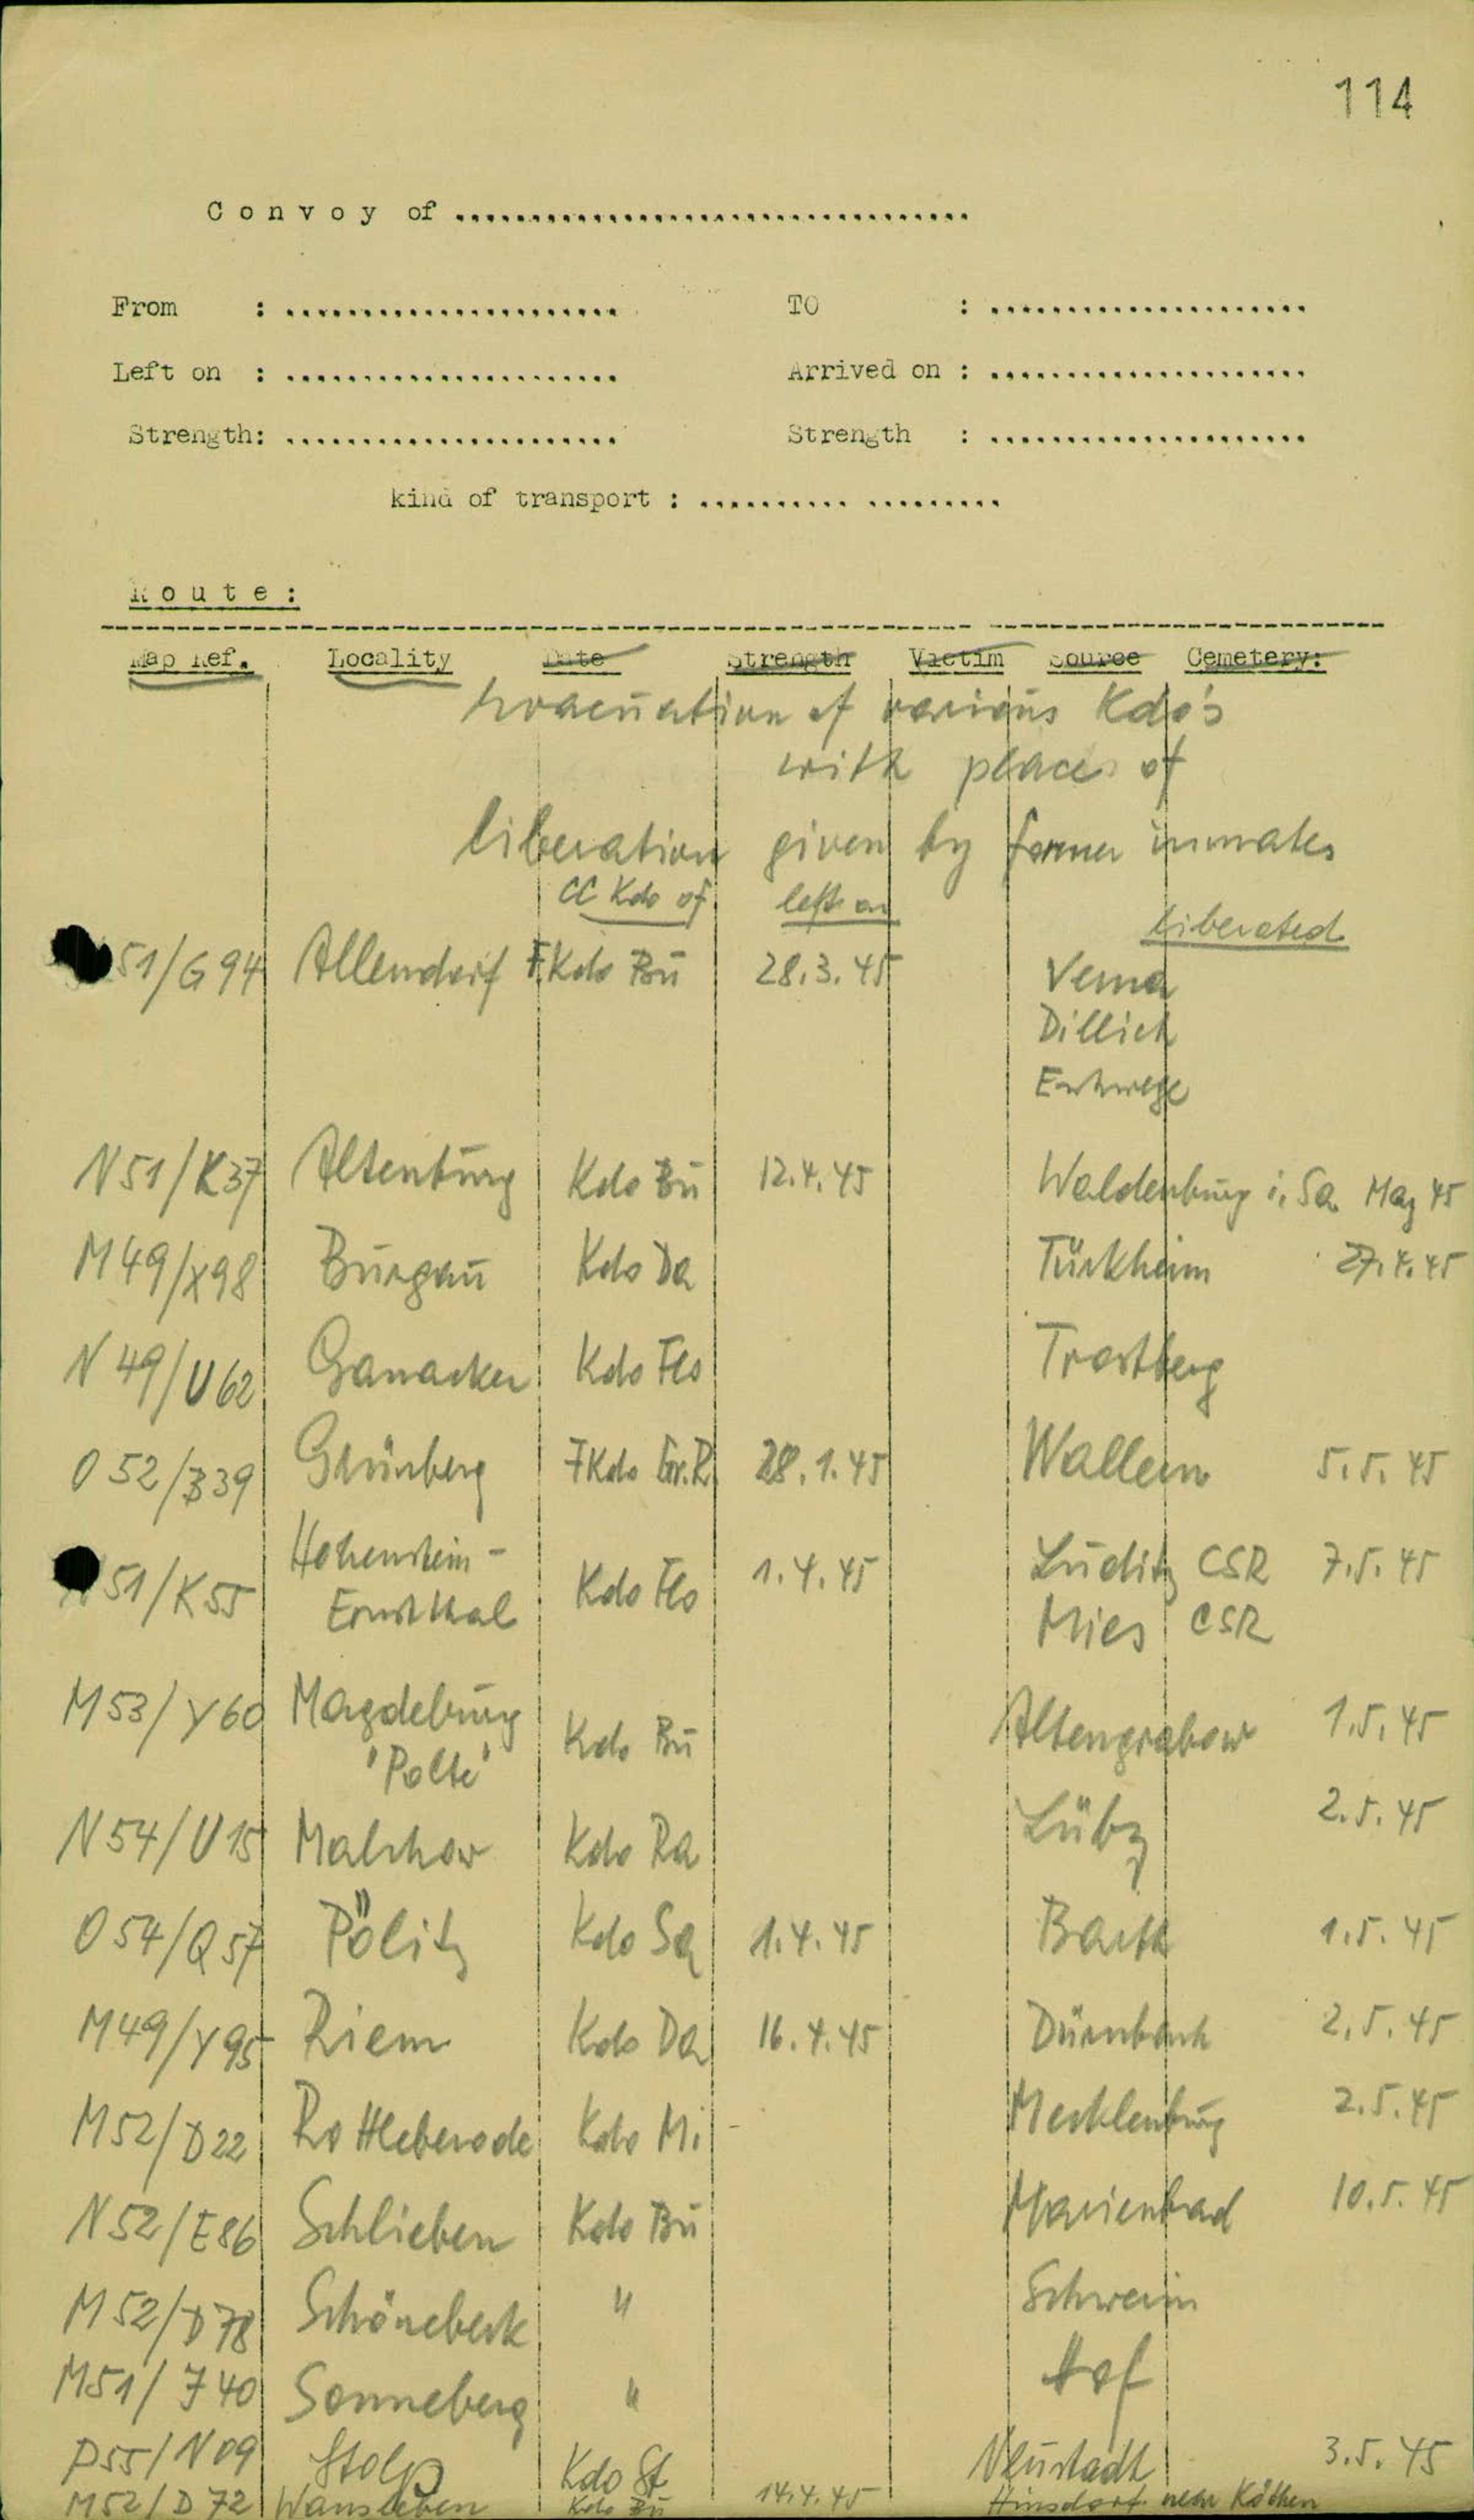 114
Convoy of ..................................
From : ...................... TO : .....................
Left on : ...................... Arrived on : .....................
Strength: ...................... Strength : .....................
kind of transport : .......... .........
Route:
Map Ref. Locality Date Strength Victim Source Cemetery:
Evacuation of various Kdo's
with places of
liberation given by former inmates
CC Kdo of left on liberated
51/G94 Allendorf F.Kdo Bu 28.3.45 Verna
Dillich
Eschwege
N51/K37 Altenburg Kdo Bu 12.4.45 Waldenburg i. Sa. May 45
M49/X98 Burgau Kdo Da Türkheim 27.4.45
N49/U62 Ganacker Kdo Flo Trostberg
O52/B39 Grünberg FKdo Gr.R. 28.1.45 Wallern 5.5.45
Hohenstein-
N51/K55 Ernstthal Kdo Flo 1.4.45 Luditz CSR 7.5.45
Mies CSR
M53/Y60 Magdeburg Kdo Bu Altengrabow 1.5.45
"Polte"
N54/U15 Malchow Kdo Ra Lübz 2.5.45
O54/Q57 Pölitz Kdo Sa 1.4.45 Barth 1.5.45
M49/Y95 Riem Kdo Da 16.4.45 Dürnbach 2.5.45
M52/D22 Rottleberode Kdo Mi - Mecklenburg 2.5.45
N52/E86 Schlieben Kdo Bu Marienbad 10.5.45
M52/D78 Schönebeck " Schwerin
M51/J40 Sonneberg " Hof
P55/N09 Stolp Kdo St Neustadt 3.5.45
M52/D72 Wansleben Kdo Bu 14.4.45 Hinsdorf near Köthen